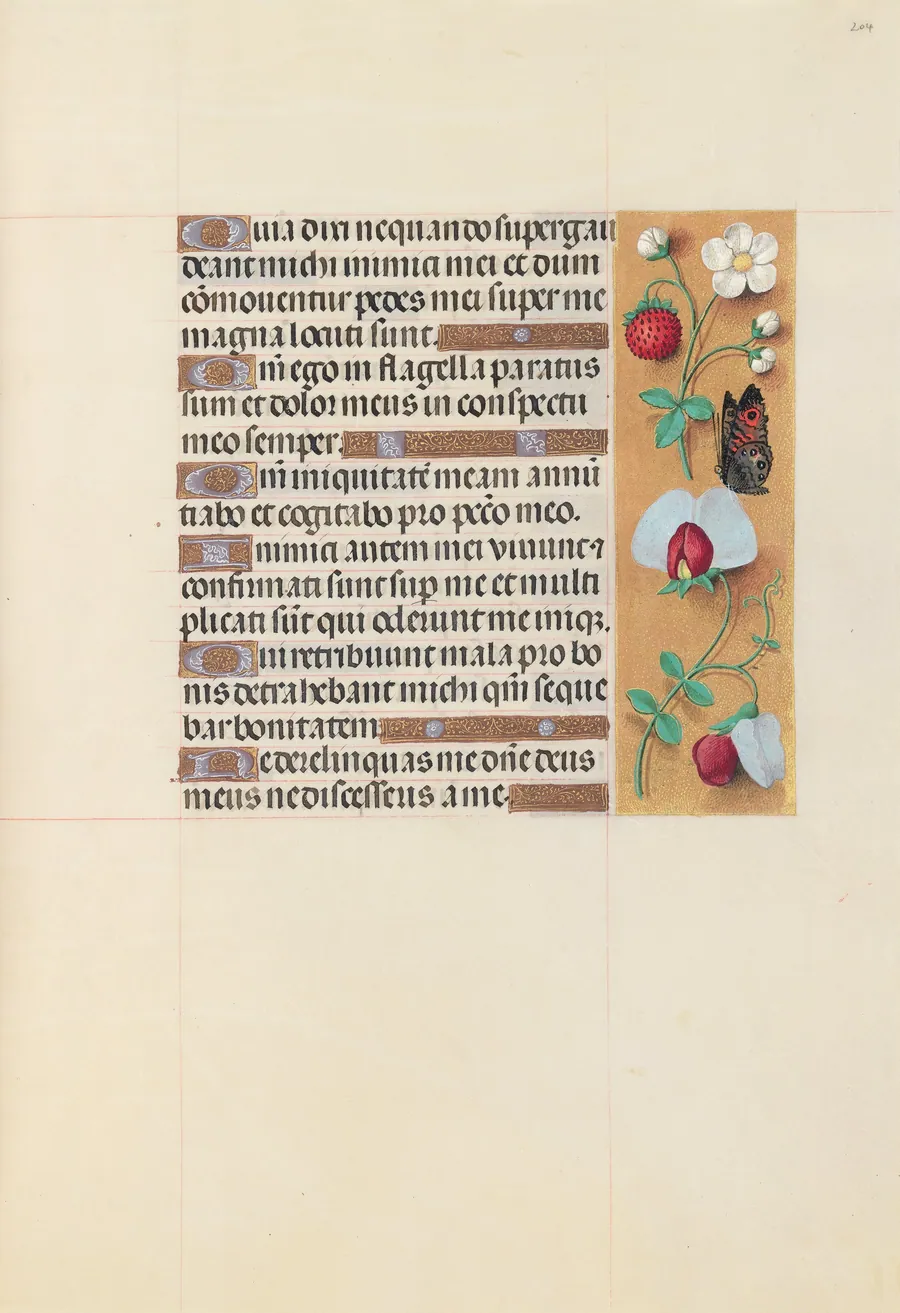 204
Quia dixi nequando supergau
deant michi inimici mei et dum
cōmoventur pedes mei super me
magna locuti sunt.
Qm̄ ego in flagella paratus
sum et dolor meus in conspectu
meo semper.
Qm̄ iniquitatē meam annū
tiabo et cogitabo pro pecō meo.
Inimici autem mei vivunt ⁊
confirmati sunt sup me et multi
plicati sūt qui oderunt me iniqꝫ.
Qui retribuunt mala pro bo
nis detrahebant michi qm̄ seque
bar bonitatem
Ne derelinquas me dn̄e deus
meus ne discesseris a me.